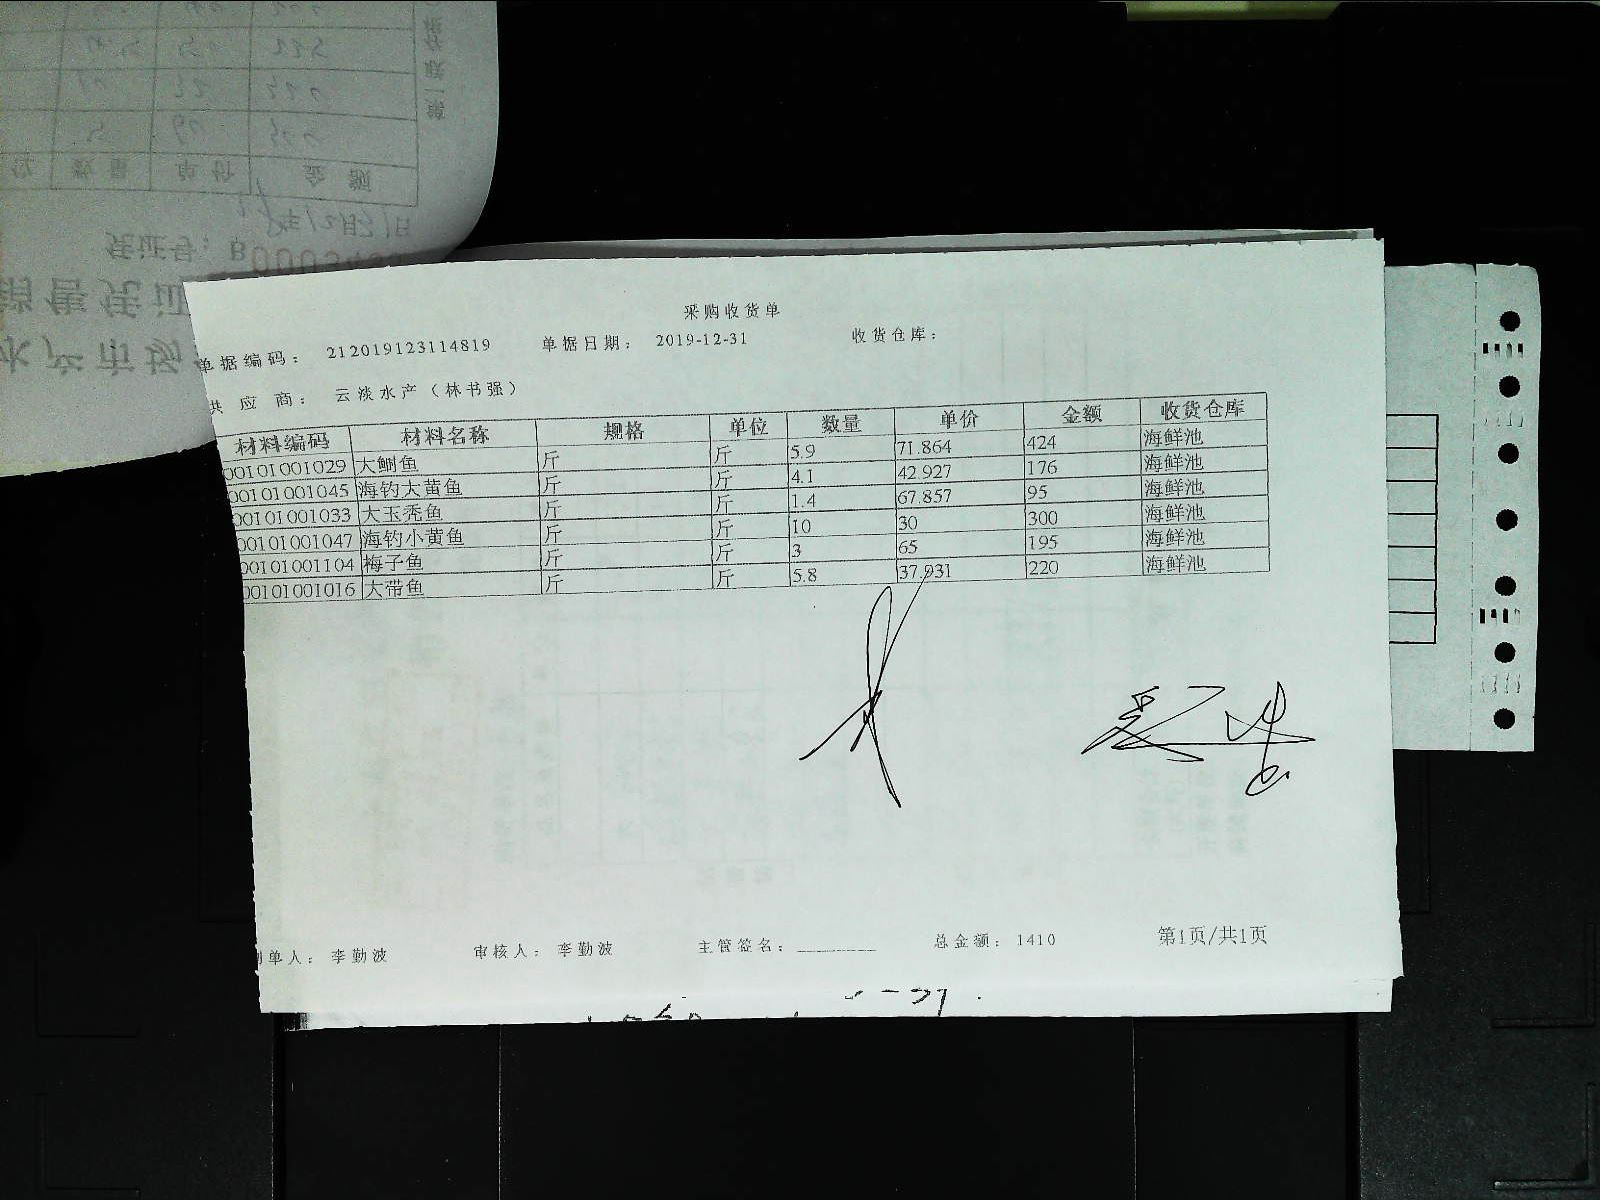 采购收货单
单据编码： 212019123114819 单据日期： 2019-12-31 收货仓库：
供应商： 云淡水产（林书强）
材料编码 材料名称 规格 单位 数量 单价 金额 收货仓库
00101001029 大鲷鱼 斤 斤 5.9 71.864 424 海鲜池
00101001045 海钓大黄鱼 斤 斤 4.1 42.927 176 海鲜池
00101001033 大玉秃鱼 斤 斤 1.4 67.857 95 海鲜池
00101001047 海钓小黄鱼 斤 斤 10 30 300 海鲜池
00101001104 梅子鱼 斤 斤 3 65 195 海鲜池
00101001016 大带鱼 斤 斤 5.8 37.931 220 海鲜池
制单人： 李勤波 审核人： 李勤波 主管签名： 总金额： 1410 第1页/共1页
水产市场
销售凭证
凭证号：B
数量 单价 金额